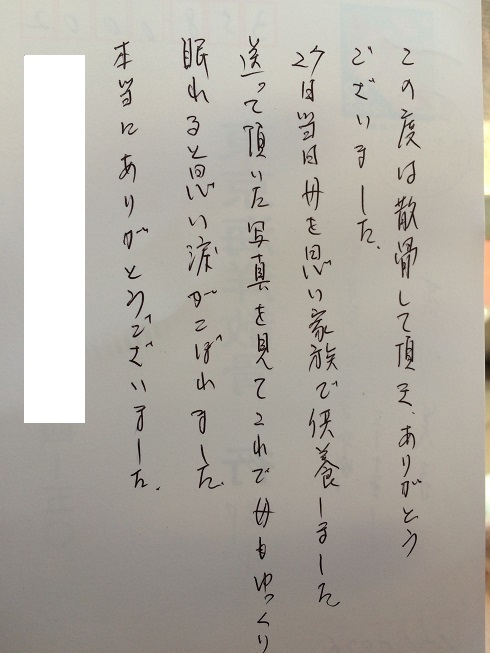 この度は散骨して頂き、ありがとう
ございました。
27日当日母を思い家族で供養しました
送って頂いた写真を見てこれで母もゆっくり
眠れると思い涙がこぼれました。
本当にありがとうございました。